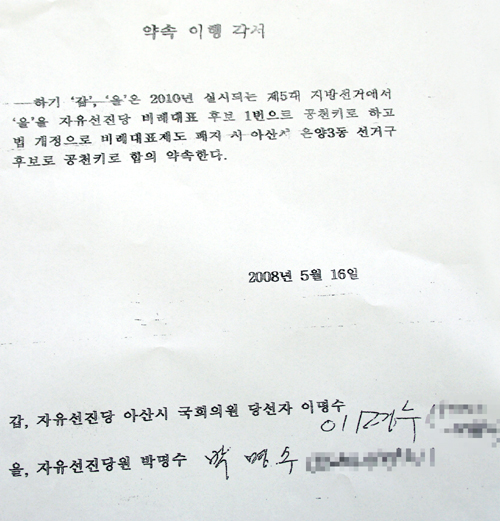 약속 이행 각서
하기 '갑', '을'은 2010년 실시되는 제5대 지방선거에서
'을'을 자유선진당 비례대표 후보 1번으로 공천키로 하고
법 개정으로 비례대표제도 폐지 시 아산시 온양3동 선거구
후보로 공천키로 합의 약속한다.
2008년 5월 16일
갑, 자유선진당 아산시 국회의원 당선자 이명수 이명수
을, 자유선진당원 박명수 박명수